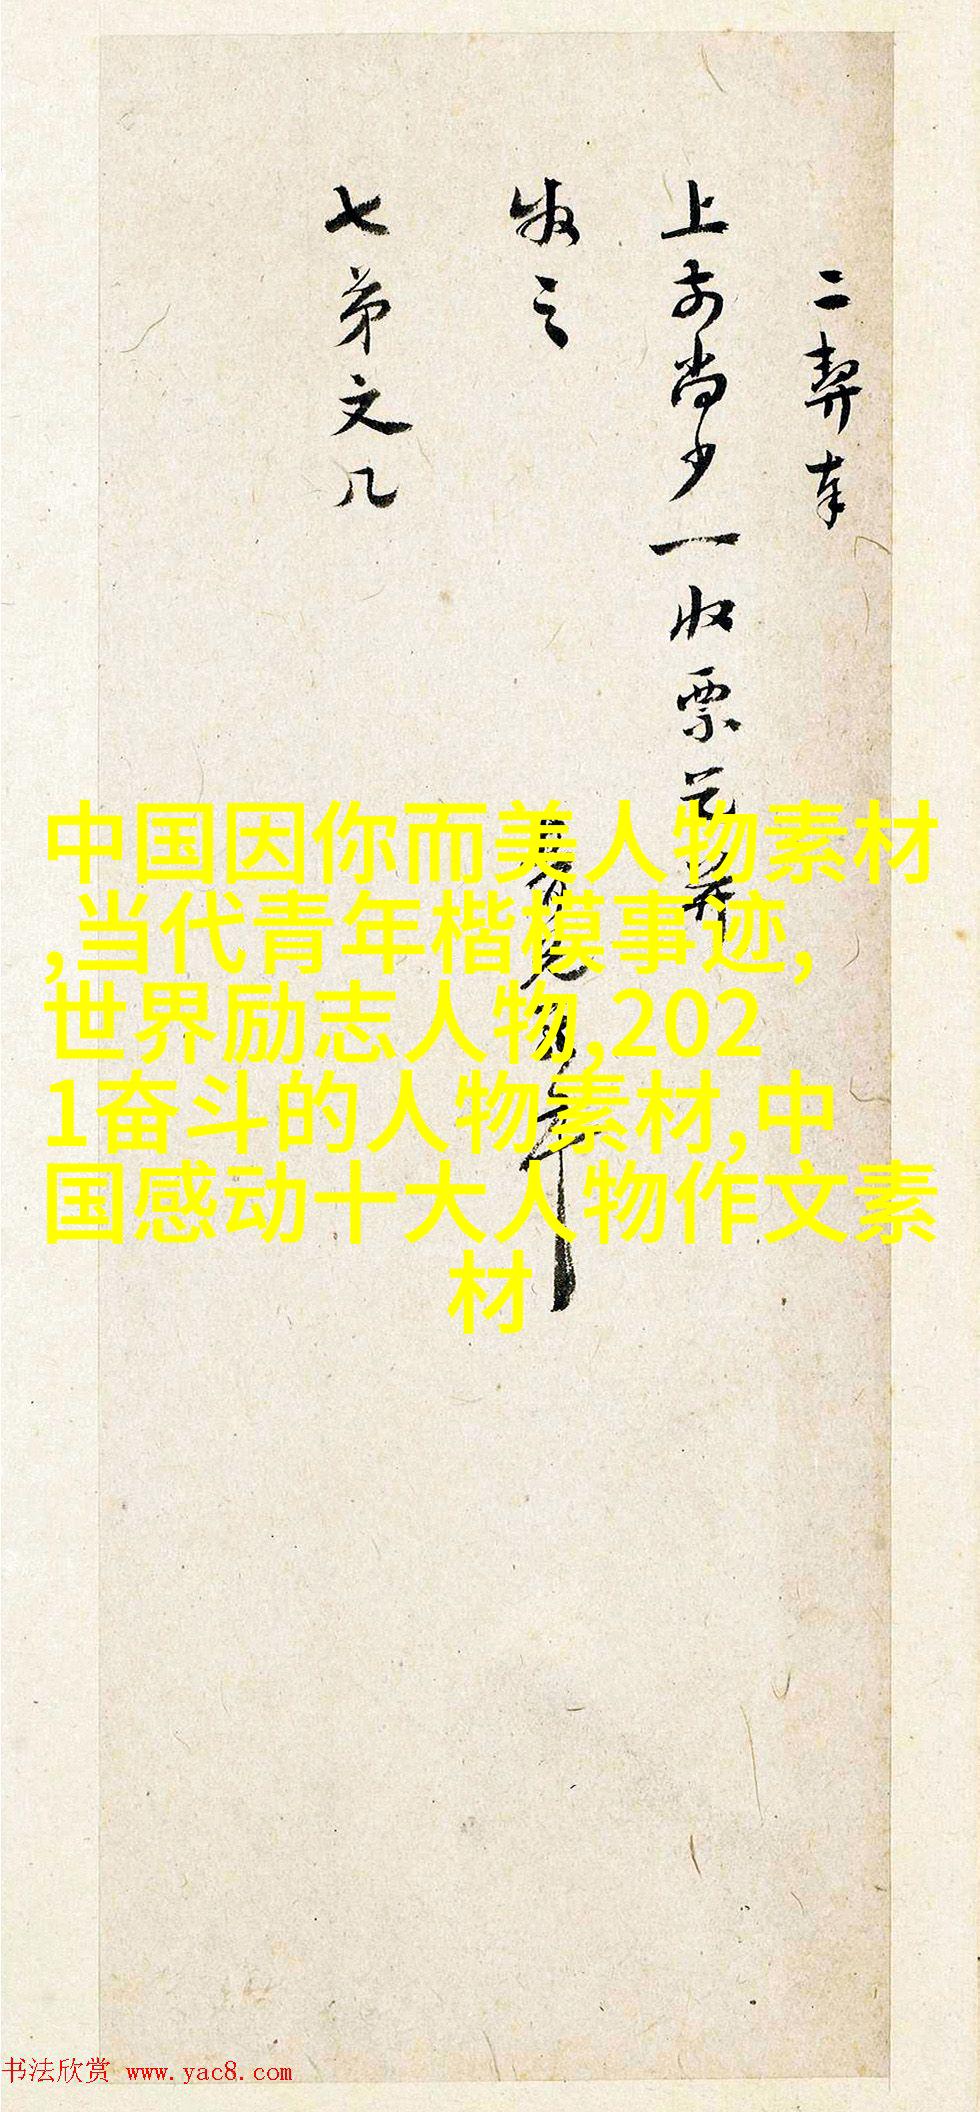 二契奉
上前尚少一收票花契
收之
七弟文几
中国因你而美人物素材
,当代青年楷模事迹,
世界励志人物,202
1奋斗的人物素材,中
国感动十大人物作文素
材
书法欣赏 www.yac8.com